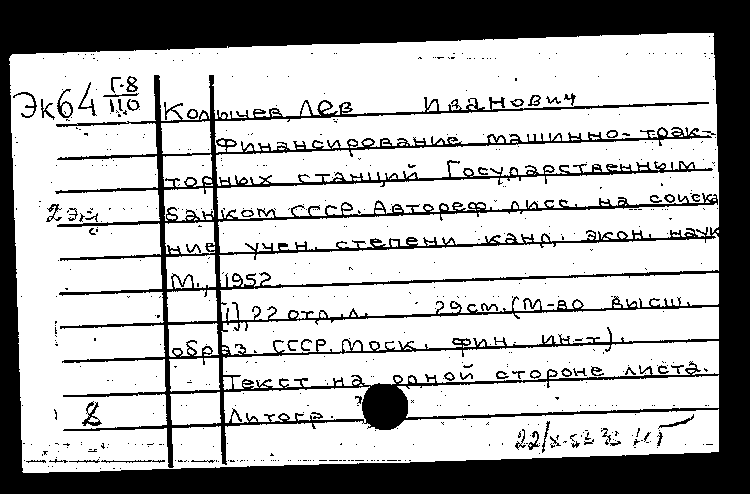 Эк64 Г-8/110
Колычев, Лев Иванович
Финансирование машинно-трак-
торных станций Государственным
2 экз
банком СССР. Автореф. дисс. на соиска
ние учен. степени канд. экон. наук
М., 1952.
[1], 22 отд. л. 29 см. (М-во высш.
образ. СССР. Моск. фин. ин-т).
Текст на одной стороне листа.
8
Литогр.
22/X-52